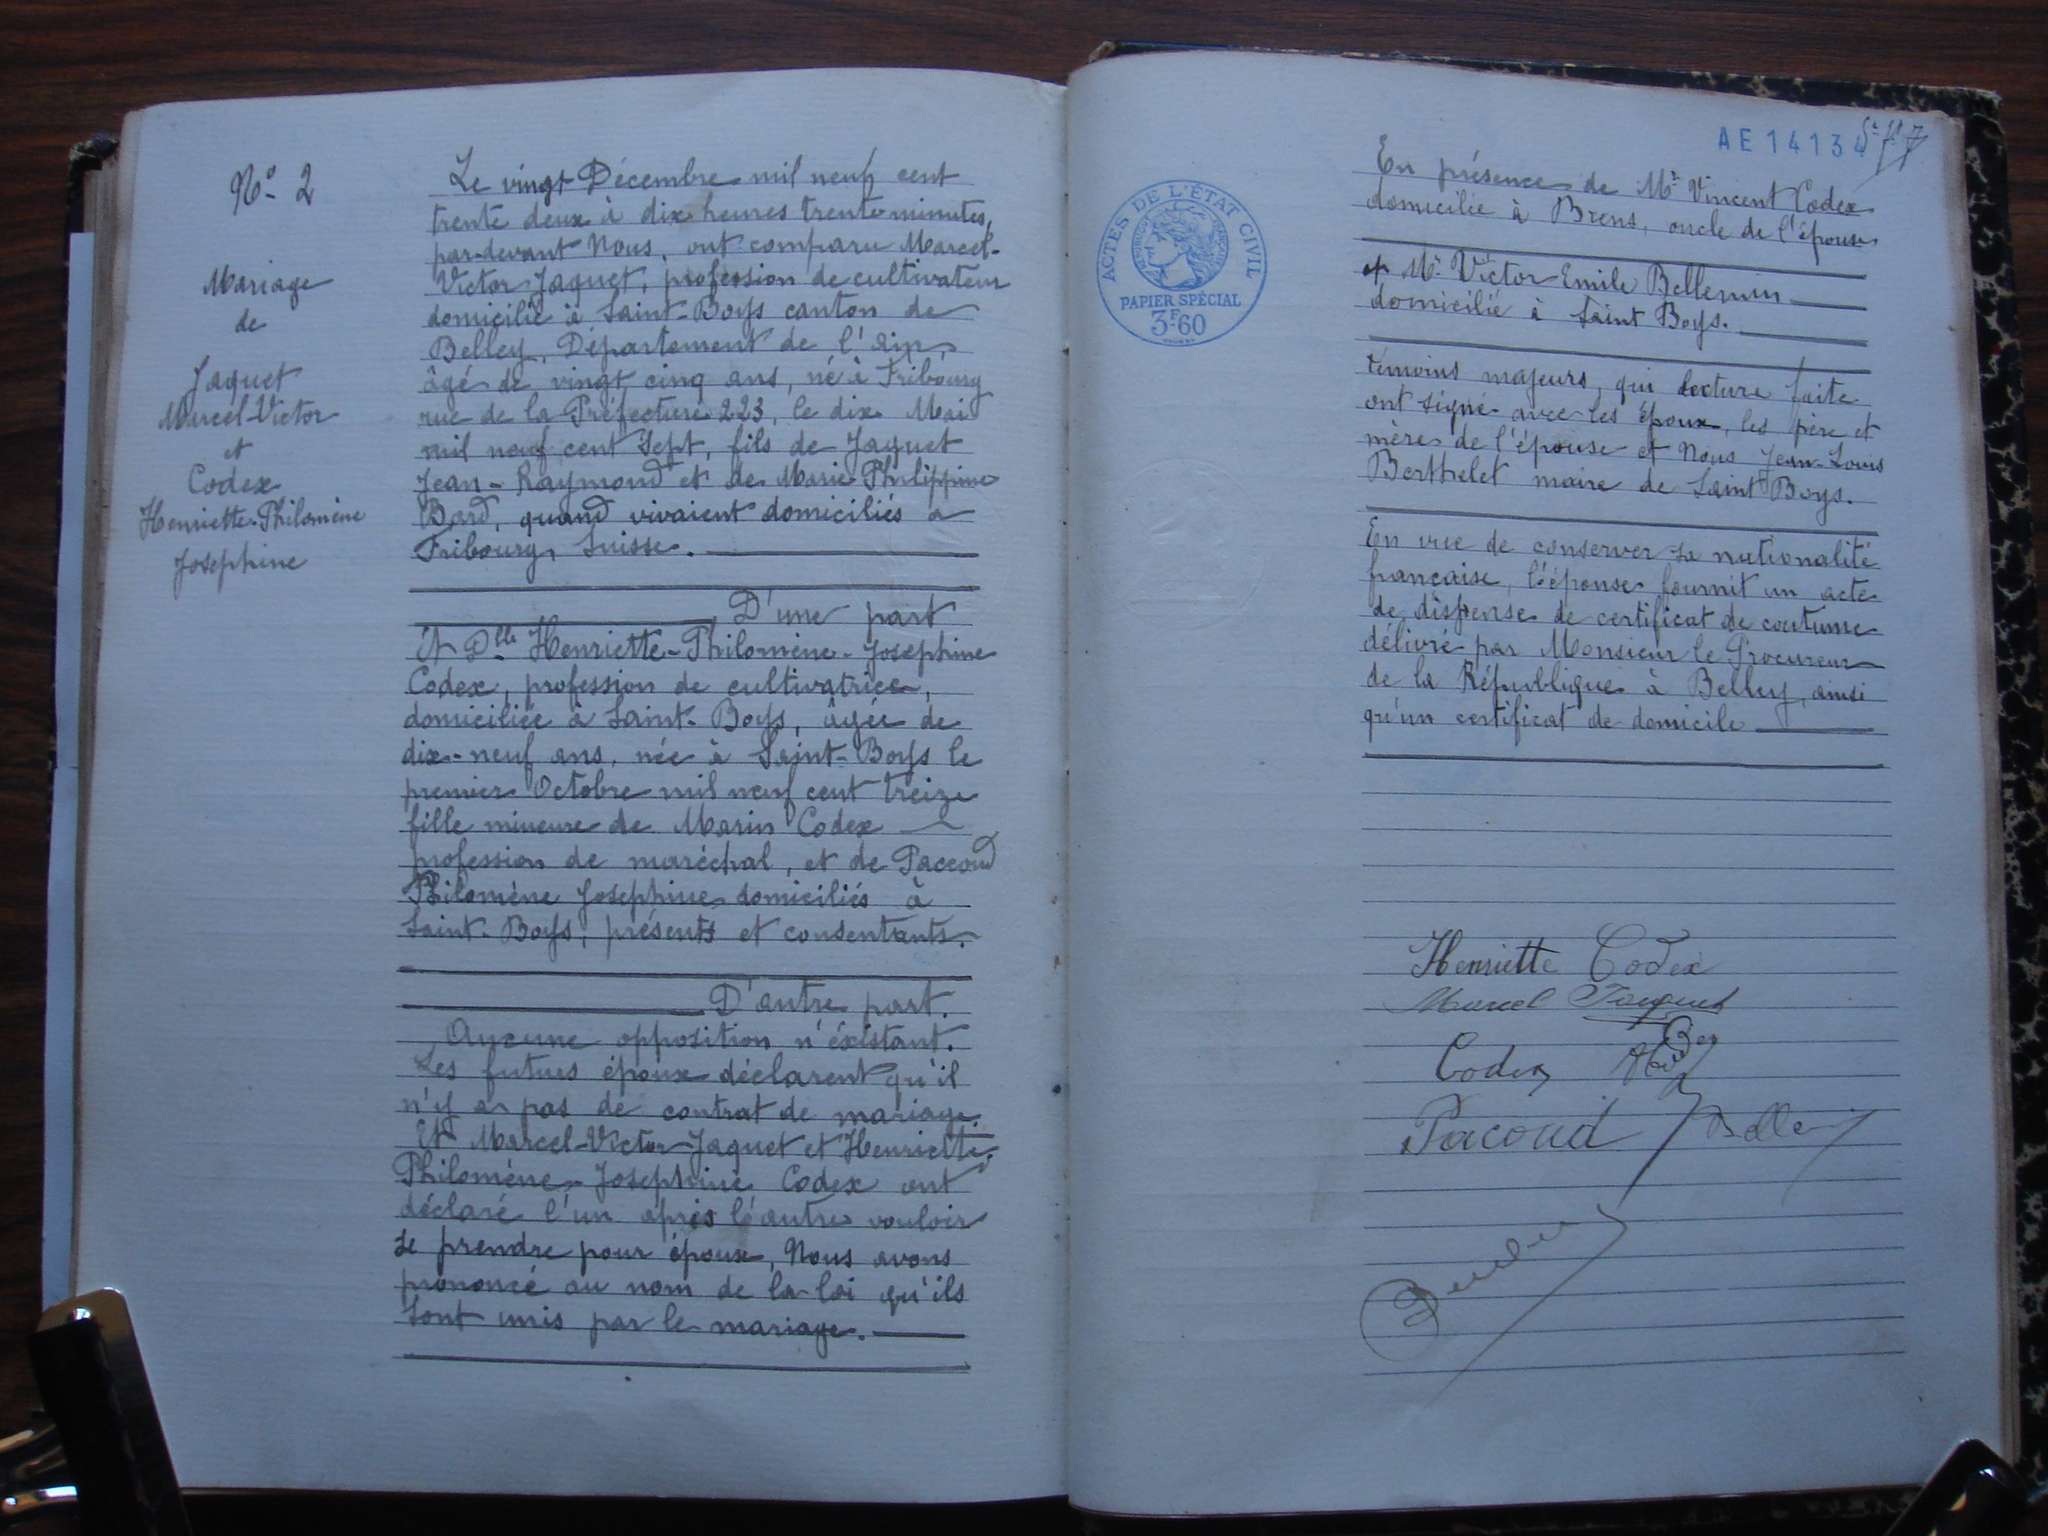 N° 2
Mariage
de
Jaquet
Marcel-Victor
et
Codex
Henriette-Philomène
Josephine
Le vingt Décembre mil neuf cent
trente deux à dix heures trente minutes,
par-devant Nous, ont comparu Marcel-
Victor Jaquet, profession de cultivateur
domicilié à Saint-Boys canton de
Belley, Département de l'Ain,
âgé de vingt cinq ans, né à Fribourg
rue de la Préfecture 223, le dix Mai
mil neuf cent sept, fils de Jaquet
Jean-Raymond et de Marie Philippine
Bard, quand vivaient domiciliés à
Fribourg, Suisse.
D'une part
Et Dlle Henriette-Philomène-Josephine
Codex, profession de cultivatrice,
domiciliée à Saint-Boys, âgée de
dix-neuf ans, née à Saint-Boys le
premier Octobre mil neuf cent treize
fille mineure de Marin Codex
profession de maréchal, et de Paccoud
Philomène Josephine domiciliés à
Saint-Boys, présents et consentants.
D'autre part.
Aucune opposition n'éxistant.
Les futurs époux déclarent qu'il
n'y a pas de contrat de mariage.
Et Marcel-Victor Jaquet et Henriette-
Philomène-Josephine Codex ont
déclaré l'un après l'autre vouloir
se prendre pour époux, Nous avons
prononcé au nom de la loi qu'ils
sont unis par le mariage.
AE 14134
ACTES DE L'ÉTAT CIVIL
RÉPUBLIQUE FRANÇAISE
PAPIER SPÉCIAL
3F.60
En présence de Mr Vincent Codex
domicilié à Brens, oncle de l'épouse
et Mr Victor Emile Bellemin
domicilié à Saint Boys.
témoins majeurs, qui lecture faite
ont signé avec les époux, les père et
mère de l'épouse et Nous Jean-Louis
Berthelet maire de Saint Boys.
En vue de conserver sa nationalité
française, l'épouse fournit un acte
de dispense de certificat de coutume
délivré par Monsieur le Procureur
de la République à Belley, ainsi
qu'un certificat de domicile
Henriette Codex
Marcel Jaquet
Codex
Pacoud